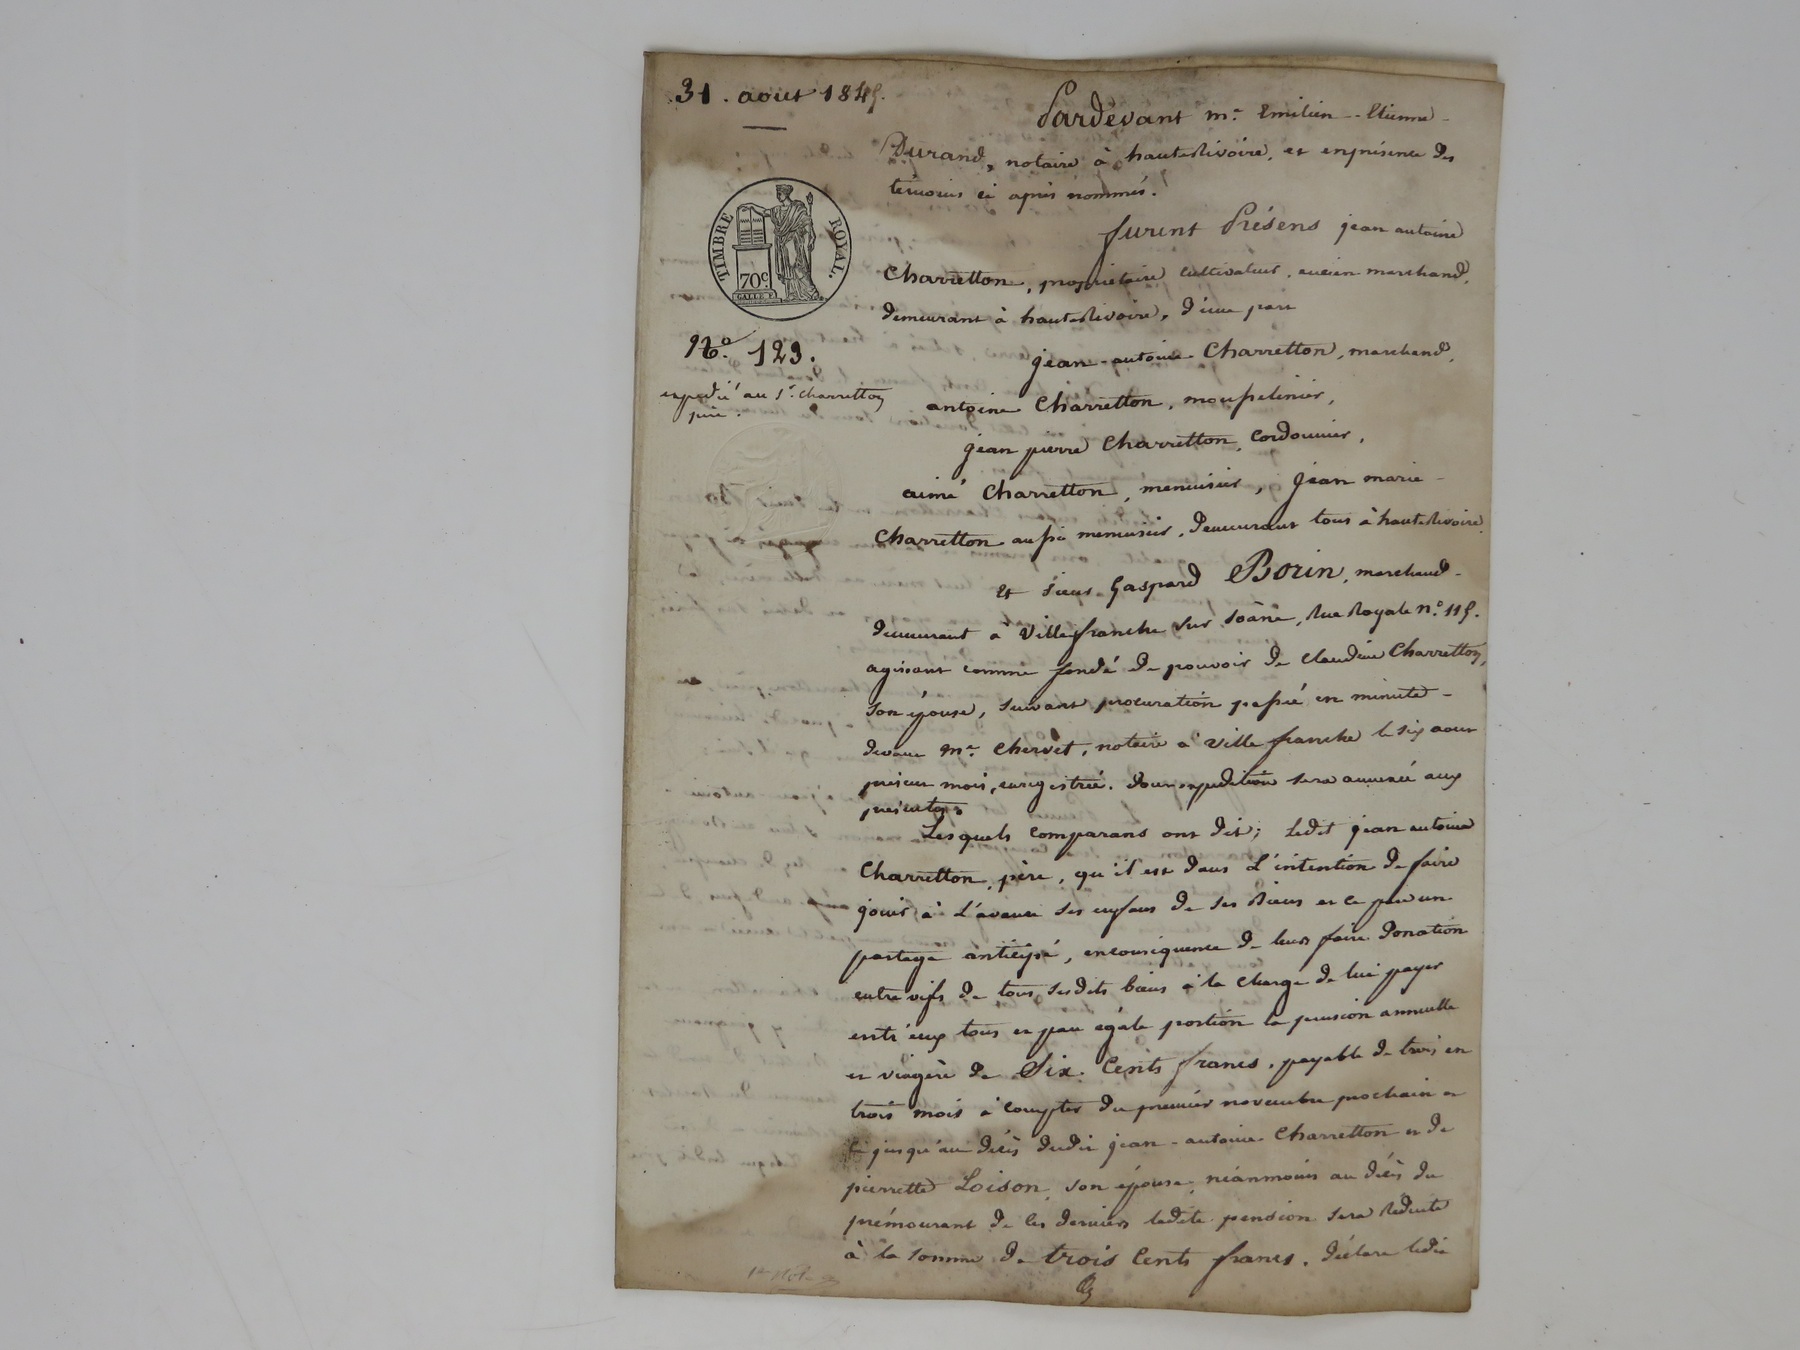 31. aout 1845.
Pardevant me. Emilien-Etienne-
Durand, notaire à hauterivoire, et en présence des
témoins ci après nommés.
TIMBRE ROYAL.
70c
GALLE F.
furent Présens jean antoine
Charretton, propriétaire cultivateur, ancien marchand,
demeurant à hauterivoire, d'une part
No. 123.
jean-antoine Charretton, marchand,
expédié au Sr. Charretton
père.
antoine Charretton, mousselinier,
jean pierre Charretton, Cordonnier,
aimé Charretton, menuisier, jean marie-
Charretton aussi menuisier, demeurant tous à hauterivoire
Et sieur Gaspard Borin, marchand-
demeurant à Villefranche sur Soâne, Rue Royale n° 115.
agissant comme fondé de pouvoir de claudine Charretton,
son épouse, suivant procuration passée en minute-
devant me. Chervet, notaire à Villefranche le six aout
présent mois, enregistrée. dont expédition sera annexée aux
présentes
Lesquels comparans ont dit; ledit jean antoine
Charretton, père, qu'il est dans L'intention de faire
jouir à L'avance ses enfans de ses Biens et ce par un
partage anticipé, en conséquence de leur faire Donation
entre vifs de tous sesdits biens à la charge de lui payer
entr'eux tous et par égale portion la pension annuelle
et viagère de Six Cents francs, payable de trois en
trois mois à compter du premier novembre prochain et
ce jusqu'au décès dudit jean-antoine Charretton et de
pierrette Loison, son épouse, néanmoins au décès du
prémourant de ces derniers ladite pension sera Réduite
à la somme de trois Cents francs. déclare ledit